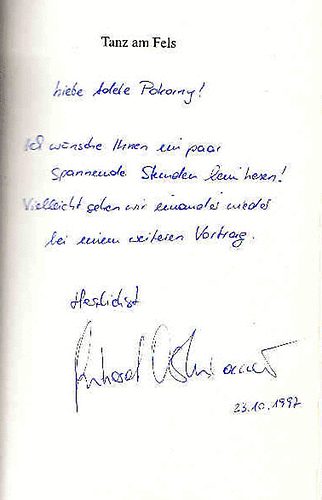 Tanz am Fels
Liebe Adele Pokorny!
Ich wünsche Ihnen ein paar
spannende Stunden beim Lesen!
Vielleicht sehen wir einander wieder
bei einem weiteren Vortrag.
Herzlichst
23.10.1997